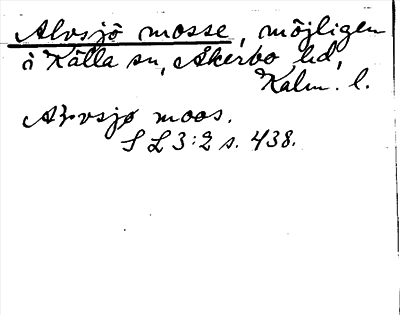 Alvsjö mosse, möjligen
i Källa sn, Åkerbo hd,
Kalm. l.
Alvsjø moos.
S L 3:2 s. 438.